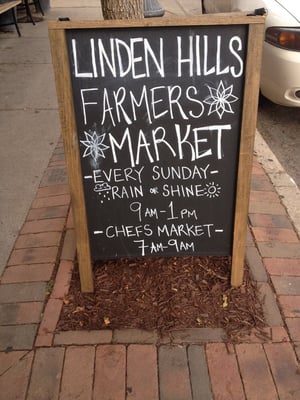 LINDEN HILLS
FARMERS
MARKET
-EVERY SUNDAY-
RAIN OR SHINE
9AM-1PM
-CHEFS MARKET-
7AM-9AM